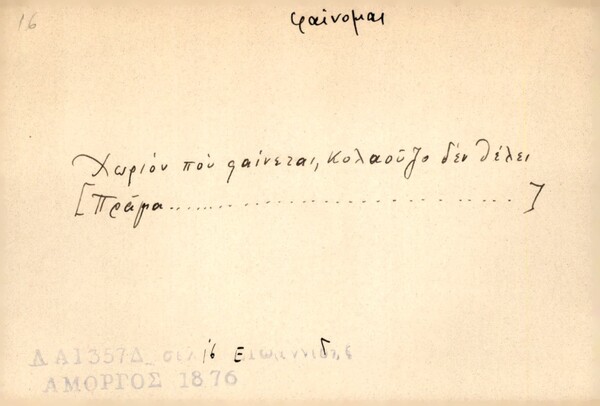 16
φαίνομαι
Χωριὸν ποὺ φαίνεται, κολαοῦζο δὲν θέλει
[Πρᾶμα.............................]
ΔΑ1357Δ σελ 16 Ε Ιωαννίδης
ΑΜΟΡΓΟΣ 1876